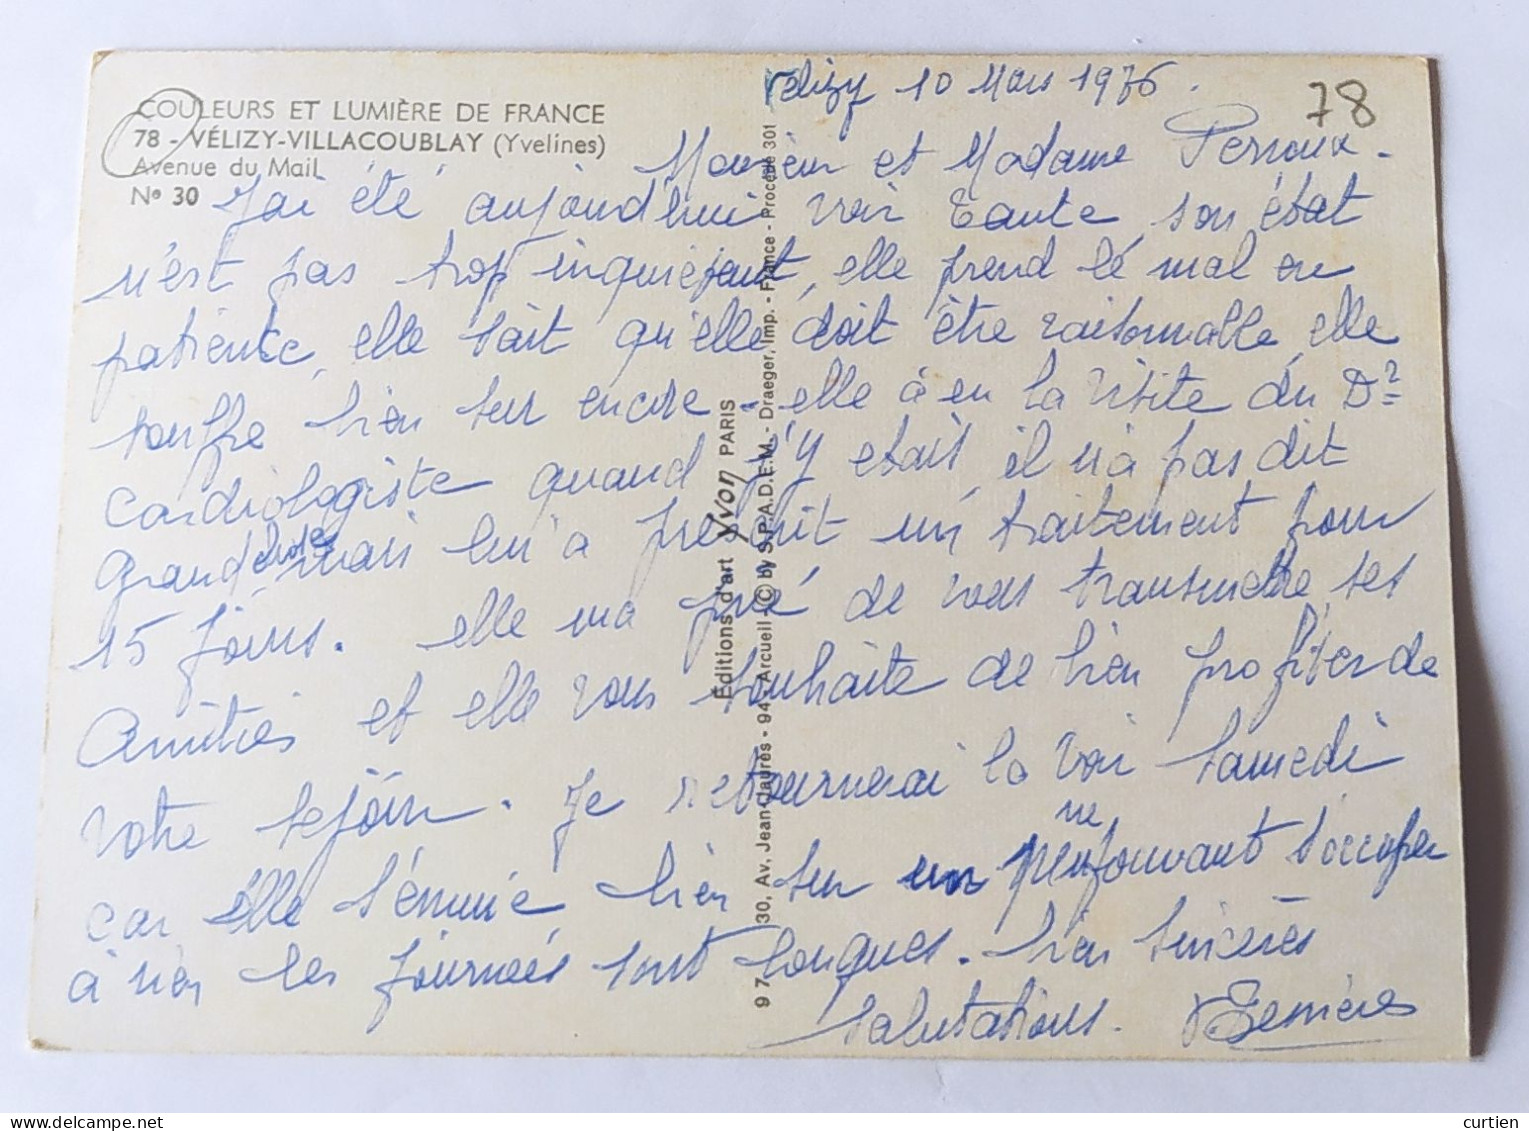 COULEURS ET LUMIÈRE DE FRANCE
78 - VÉLIZY-VILLACOUBLAY (Yvelines)
Avenue du Mail
Nº 30
Vélizy 10 Mars 1976.
78
Monsieur et Madame Perroux.
J'ai été aujourd'hui voir Tante, son état
n'est pas trop inquiétant, elle prend lé mal en
patience, elle sait qu'elle doit être raisonnable, elle
souffre bien sur encore. elle à eu la visite du Dr
Cardiologiste quand j'y etait, il n'à pas dit
Grand chose mais lui a prescrit un traitement pour
15 jours. elle ma prié de vous transmettre ses
Amitiés et elle vous souhaite de bien profiter de
votre sejour. Je retournerai la voir Samedi
car elle s'ennuie bien sur un peu ne pouvant s'occuper
à rien les journeés sont longues. bien sincères
salutations.
Éditions d'art Yvon PARIS
97 30, Av. Jean-Jaurès - 94-Arcueil - (C) by S.P.A.D.E.M. - Draeger, Imp. - France - Procédé 301
delcampe.net
curtien